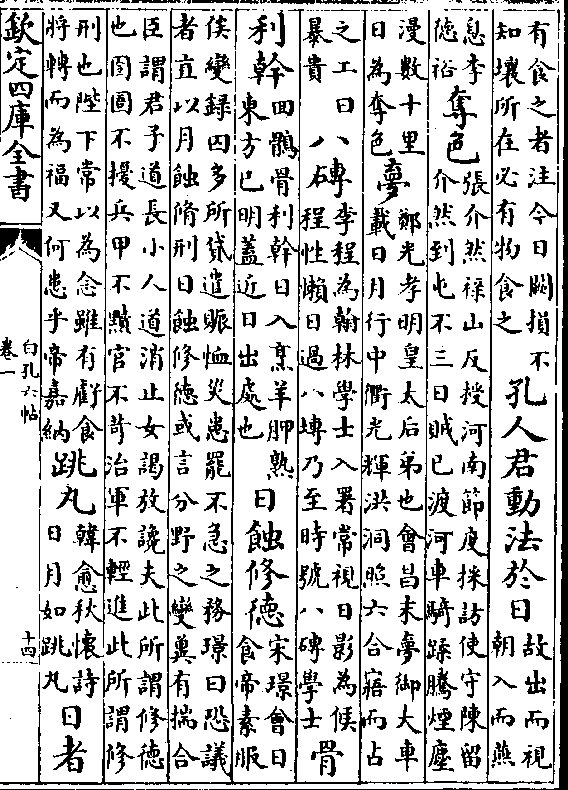 有食之者注今日闕損不
知壞所在必有物食之
孔人君動法於日
故出而視
朝入而燕
息李
德裕
奪色
張介然祿山反授河南節度採訪使守陳留
介然到屯不三日賊已渡河車騎蹂騰煙塵
漫數十里
日為奪色
夢
鄭光孝明皇太后弟也會昌末夢御大車
載日月行中衢光輝洪洞照六合寤而占
之工曰
暴貴
八磚
李程為翰林學士入署常視日影為候
程性懶日過八塼乃至時號八磚學士
骨
利幹
回鶻骨利幹日入烹羊胛熟
東方已明蓋近日出處也
日蝕修德
宋璟會日
食帝素服
俟變録囚多所貸遣賑恤災患罷不急之務璟曰恐議
者直以月蝕脩刑日蝕修德或言分野之變冀有揣合
臣謂君子道長小人道消止女謁放讒夫此所謂修德
也囹圄不擾兵甲不黷官不苛治軍不輕進此所謂修
刑也陛下常以為念雖有虧食
將轉而為福又何患乎帝嘉納
跳丸
韓愈秋懷詩
日月如跳丸
日者
欽定四庫全書
白孔六帖
卷一
十四